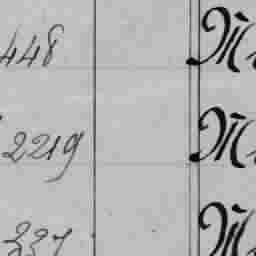 448 M
2219 M
337 M